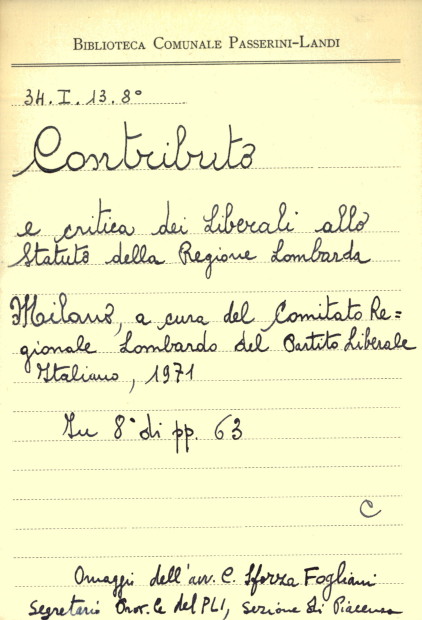 BIBLIOTECA COMUNALE PASSERINI-LANDI
34. I. 13. 8°
Contributo
e critica dei Liberali allo
Statuto della Regione Lombarda
Milano, a cura del Comitato Re=
gionale Lombardo del Partito Liberale
Italiano, 1971
In 8° di pp. 63
C
Omaggio dell'avv. C. Sforza Fogliani
Segretario Prov.le del PLI, sezione di Piacenza